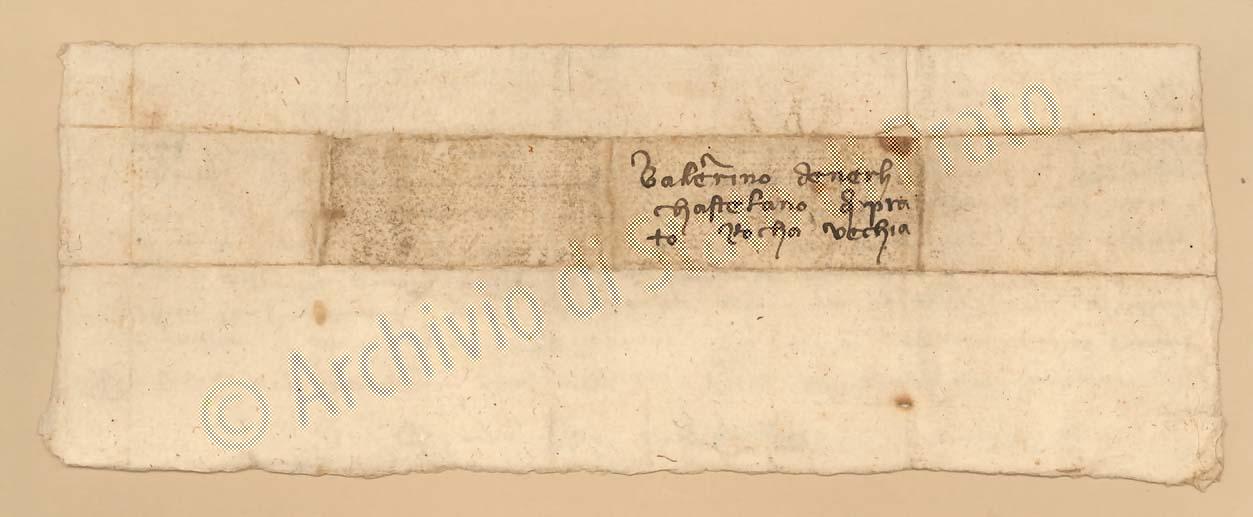 Valerino denerli
chastelano di pra
to Rocha vechia
© Archivio di Stato di Prato